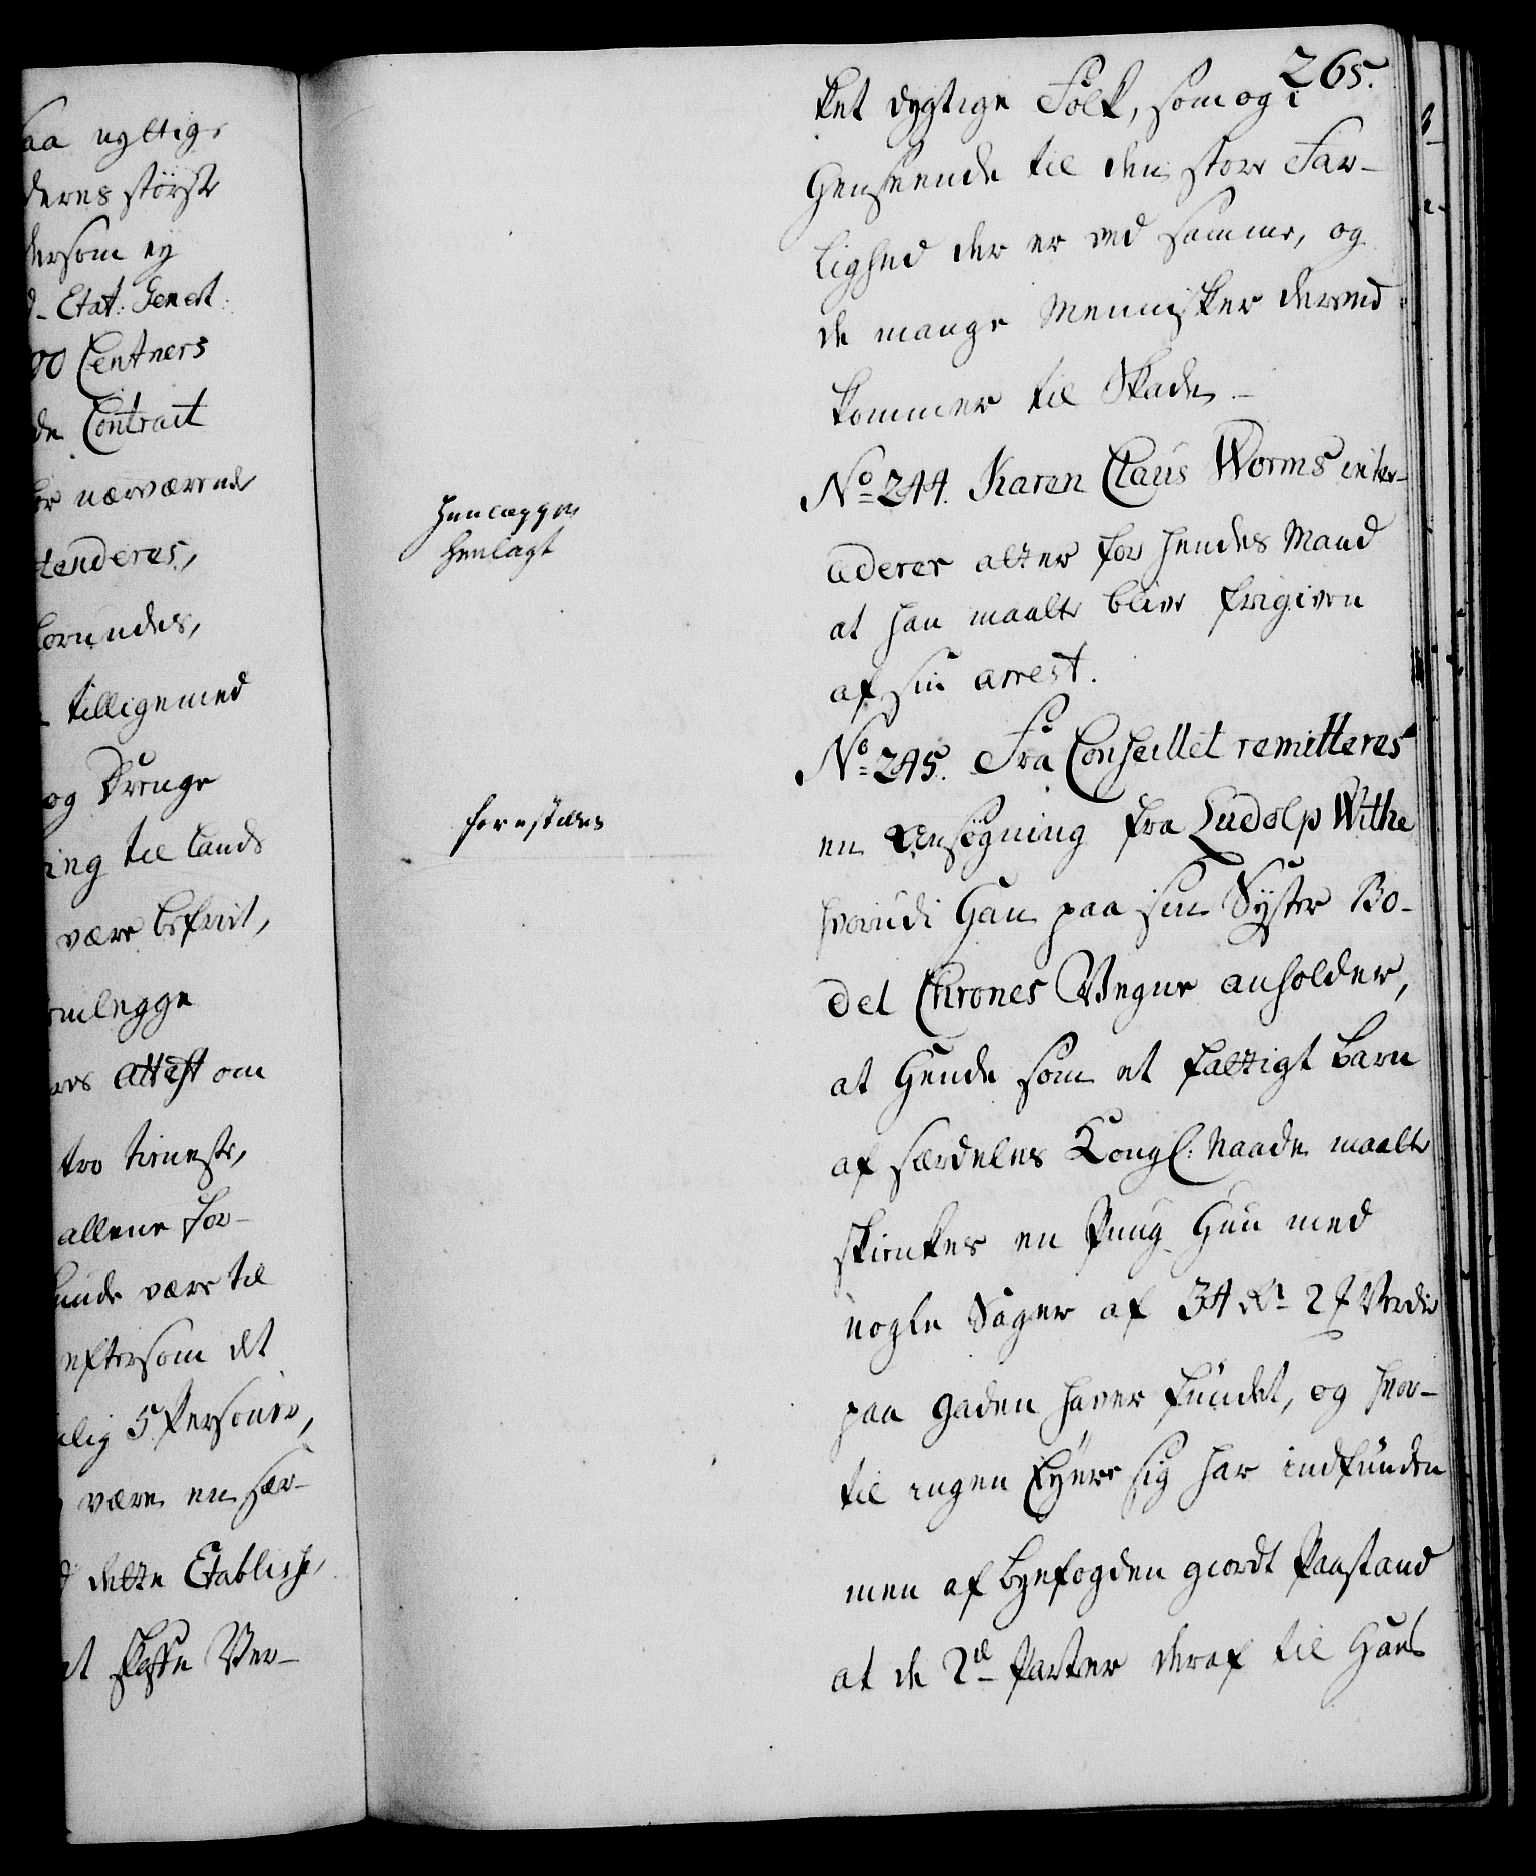 aa nyttig
deres störste
dersom ej
Etat: Genert:
00 Centners
de Contract
for nærværende
tenderes,
forundes,
tilligemed
og Drenge
ing til Lands
være befriet,
mlegge
es Attest om
tro tieneste,
allene for-
kunde være til
eftersom det
lig 5 Personer,
være en sær-
dette Etablisse,
et Ver-
265.
ket dygtige Folk, som og i
Henseende til den store Far-
lighed der er ved samme, og
de mange Mennisker derved
kommer til Skade. -
henlægges
henlagt
No 244. Karen Claus Worms inter-
cederer atter for hendes Mand
at han maatte blive frigiven
af sin arrest.
No 245. Fra Conseillet remitteres
forestilles
en Ansögning fra Ludolp Withe
hvorudi Han paa sin Syster Bo-
del Chrones Vegne anholder,
at Hende som et fattigt Barn
af særdeles Kongl: Naade maatte
skienkes en Pung Hun med
nogle Sager af 34 Rd 2 ß Verdie
paa Gaden haver fundet, og hvor-
til ingen Eyere sig har indfunden
men af Byefogden giordt Paastand
at de 2de Parter deraf til Hans